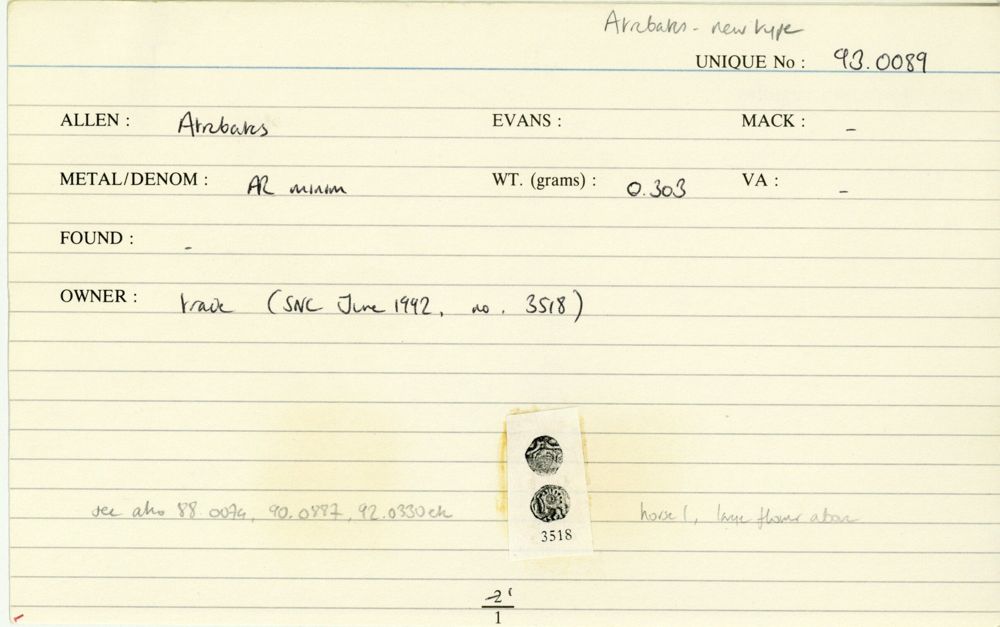 Atrebates - new type
UNIQUE No : 93.0089
ALLEN : Atrebates EVANS : MACK : -
METAL/DENOM : AR minim WT. (grams) : 0.303 VA : -
FOUND : -
OWNER : trade (SNC June 1992, no. 3518)
see also 88.0074, 90.0887, 92.0330 etc horse l, large flower above
3518
1